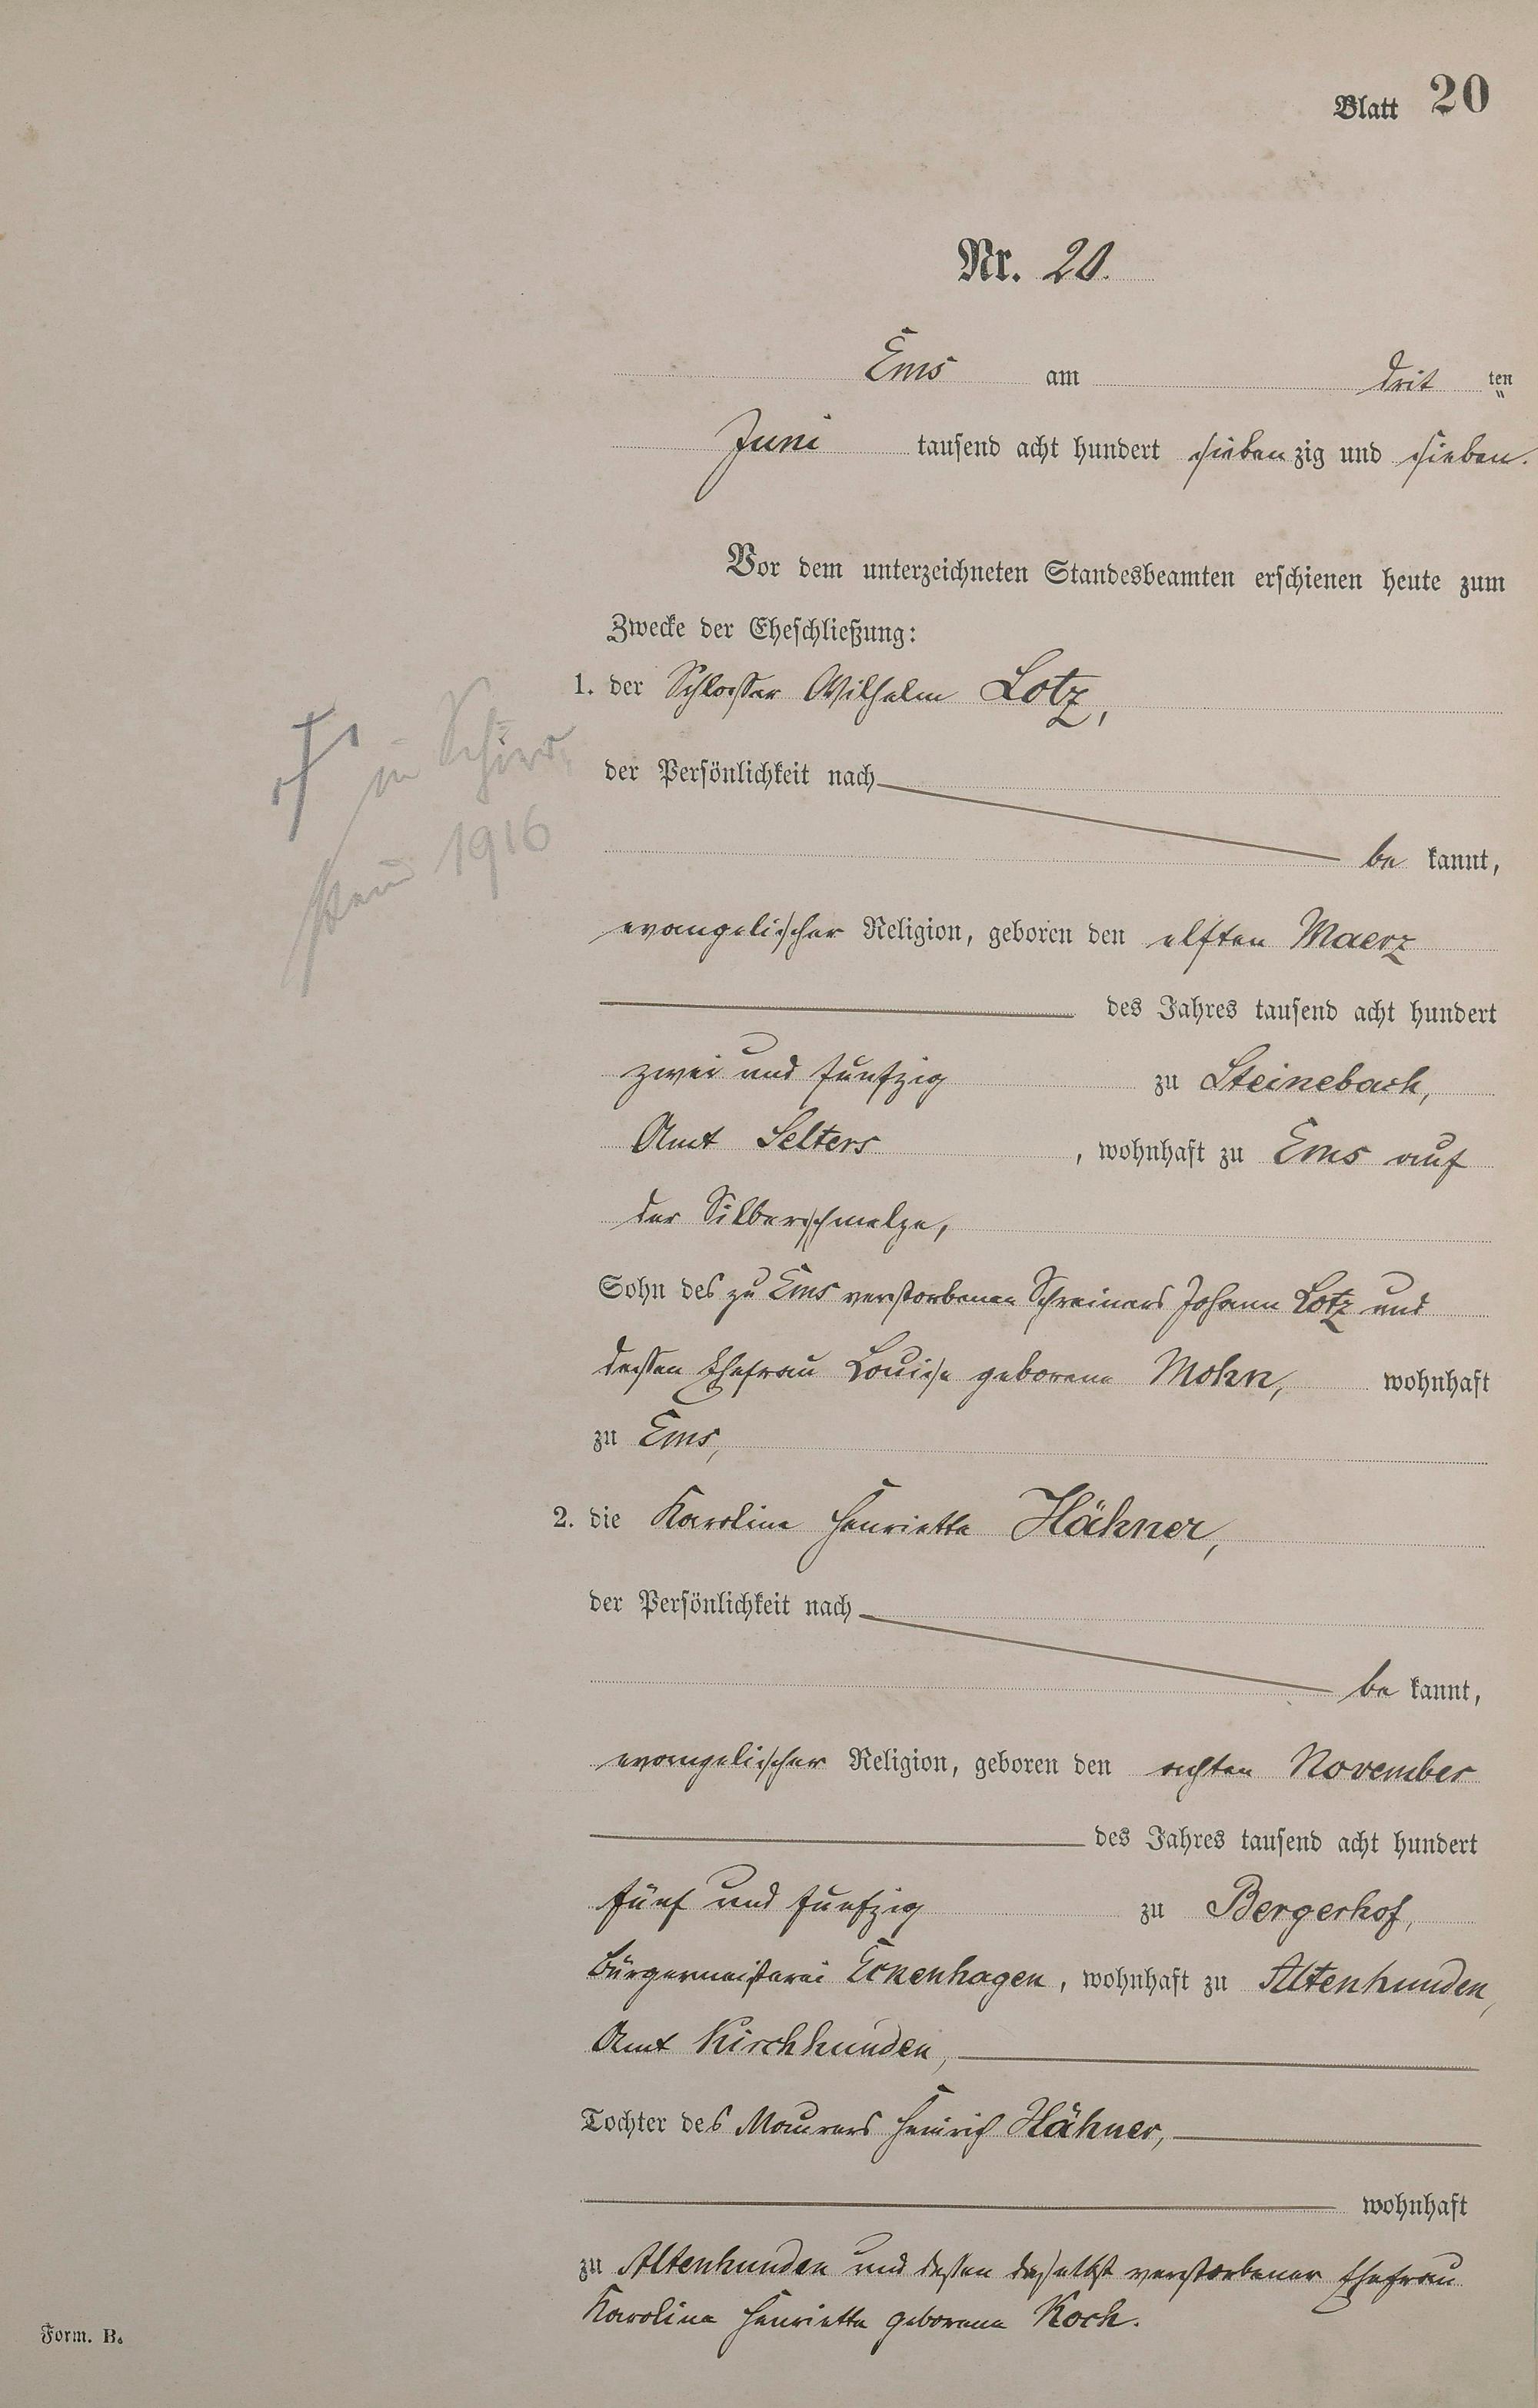 Blatt 20
Nr. 20.
Ems am drit ten
Juni tausend acht hundert siebenzig und sieben.
Vor dem unterzeichneten Standesbeamten erschienen heute zum
Zwecke der Eheschließung:
1. der Schlosser Wilhelm Lotz,
der Persönlichkeit nach
be kannt,
evangelischer Religion, geboren den elften Maerz
des Jahres tausend acht hundert
zwei und funfzig zu Steinebach,
Amt Selters, wohnhaft zu Ems auf
der Silberschmelze,
Sohn des zu Ems verstorbenen Schreiners Johann Lotz und
dessen Ehefrau Louise geborene Mohn, wohnhaft
zu Ems,
2. die Karoline Henriette Hähner,
der Persönlichkeit nach
be kannt,
evangelischer Religion, geboren den achten November
des Jahres tausend acht hundert
fünf und funfzig zu Bergerhof,
Bürgermeisterei Eckenhagen, wohnhaft zu Altenhunden,
Amt Kirchhunden,
Tochter des Maurers Heinrich Hähner,
wohnhaft
zu Altenhunden und dessen daselbst verstorbener Ehefrau
Karoline Henriette geborene Koch.
in
1916
Form. B.